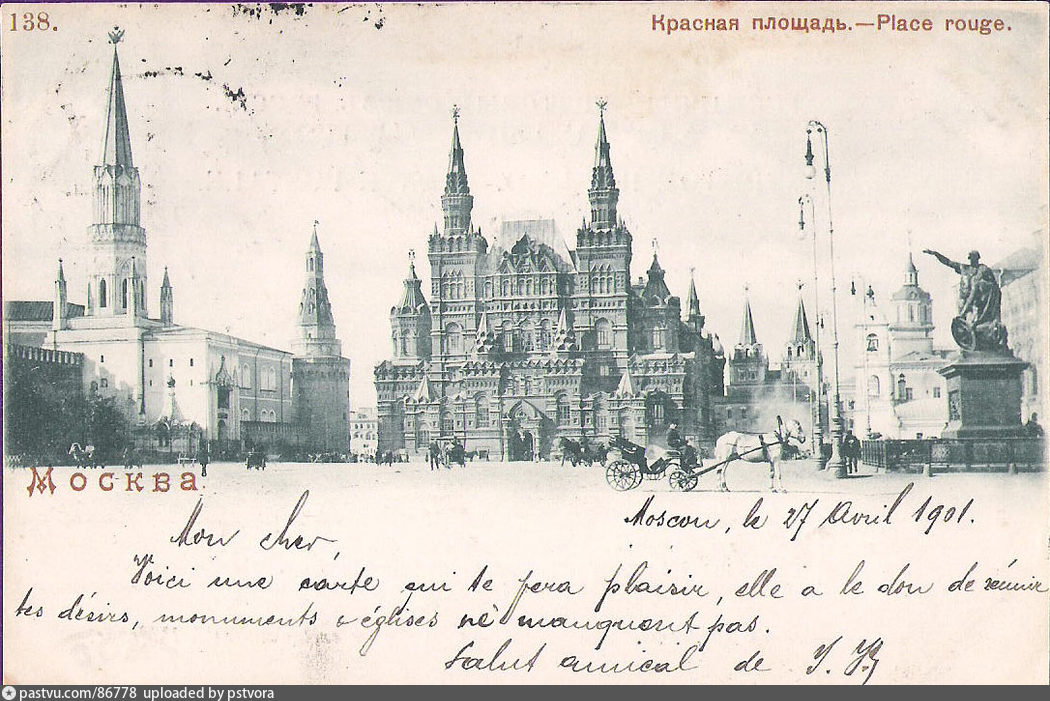 138.
Красная площадь.—Place rouge.
Москва
Moscou, le 27 Avril 1901.
Mon cher,
Voici une carte qui te fera plaisir, elle a le don de réunir
tes désirs, monuments & églises n'e manquent pas.
Salut amical de
pastvu.com/86778 uploaded by pstvora